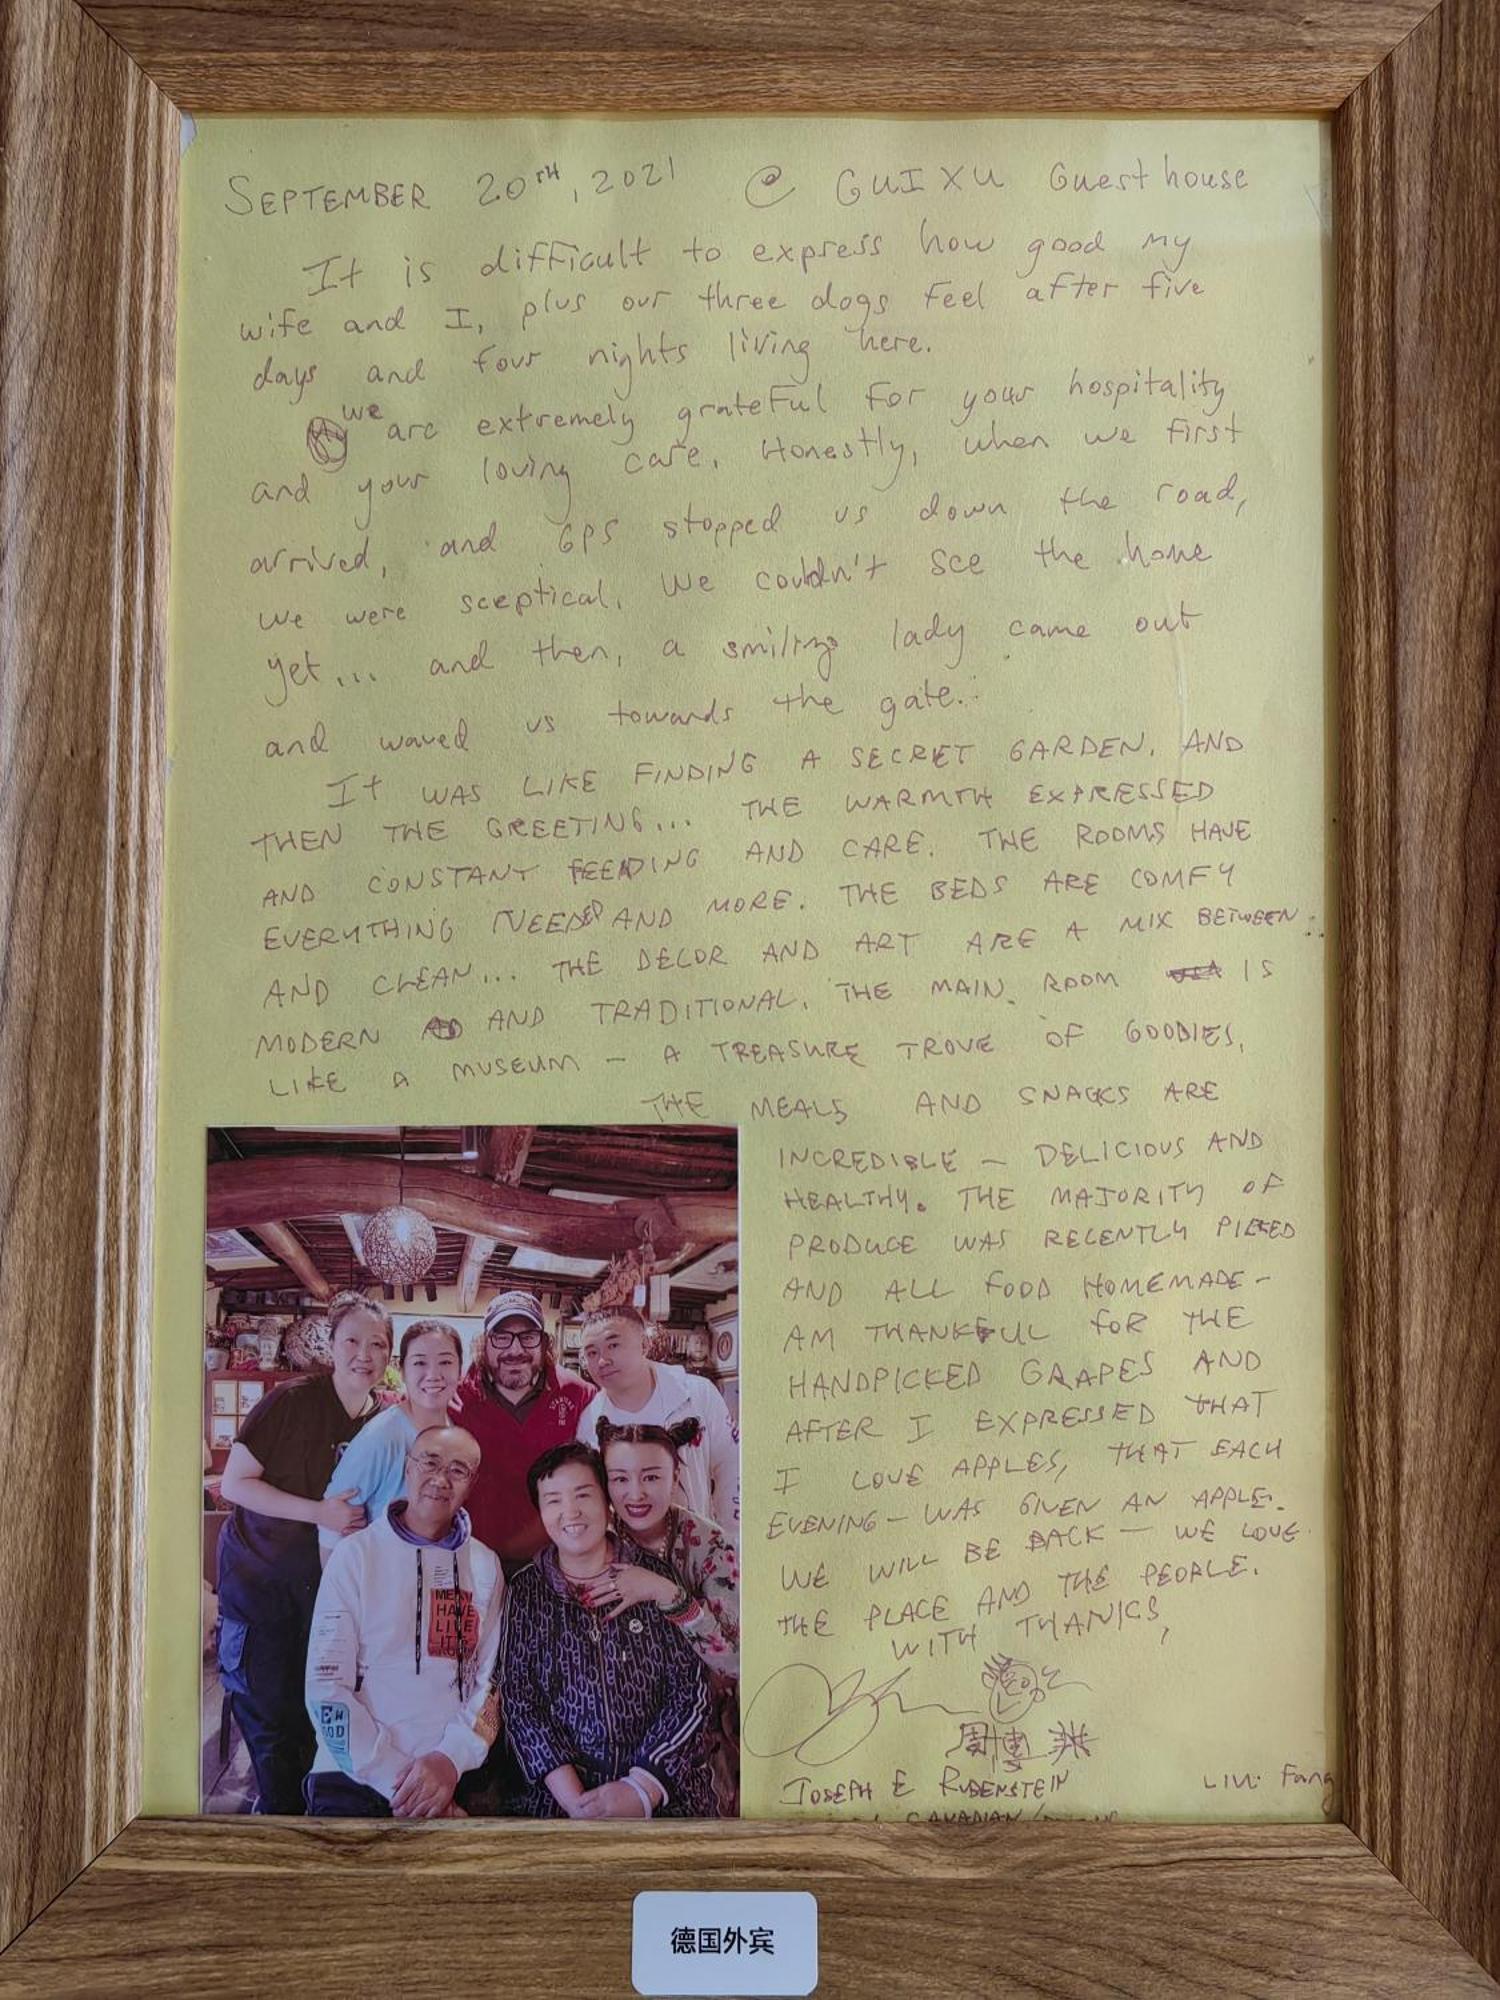 SEPTEMBER 20TH, 2021 @ GUIXU Guesthouse
It is difficult to express how good my
wife and I, plus our three dogs feel after five
days and four nights living here.
we are extremely grateful for your hospitality
and your loving care. Honestly, when we first
arrived, and GPS stopped us down the road,
we were sceptical. We couldn't see the home
yet... and then, a smiling lady came out
and waved us towards the gate..
It WAS LIKE FINDING A SECRET GARDEN. AND
THEN THE GREETING... THE WARMTH EXPRESSED
AND CONSTANT FEEDING AND CARE. THE ROOMS HAVE
EVERYTHING NEEDED AND MORE. THE BEDS ARE COMFY
AND CLEAN... THE DECOR AND ART ARE A MIX BETWEEN
MODERN AND TRADITIONAL. THE MAIN ROOM IS
LIKE A MUSEUM - A TREASURE TROVE OF GOODIES.
THE MEALS AND SNACKS ARE
INCREDIBLE - DELICIOUS AND
HEALTHY. THE MAJORITY OF
PRODUCE WAS RECENTLY PICKED
AND ALL FOOD HOMEMADE-
AM THANKFUL FOR THE
HANDPICKED GRAPES AND
AFTER I EXPRESSED THAT
I LOVE APPLES, THAT EACH
EVENING - WAS GIVEN AN APPLE.
WE WILL BE BACK - WE LOVE
THE PLACE AND THE PEOPLE.
WITH THANKS,
周博
JOSEPH E RUBENSTEIN
Fang
CANADIAN
ME
HAVE
LIVE
IT
德国外宾